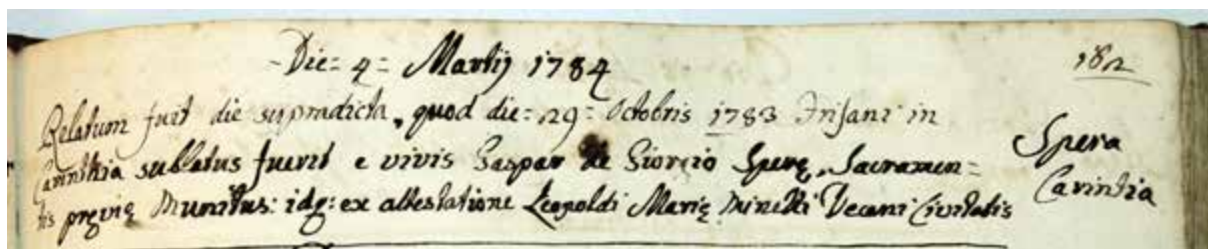 Die = 4 = Martij 1784
182
Relatum fuit die supradicta, quod die = 29 = Octobris 1783 Frisani in
Carinthia sublatus fuerit e vivis Gaspar de Giorgio Sperę, Sacramen=
tis pręvię munitus: idq: ex attestatione Leopoldi Marię Minelli Decani Civitatis
Spera
Carintia